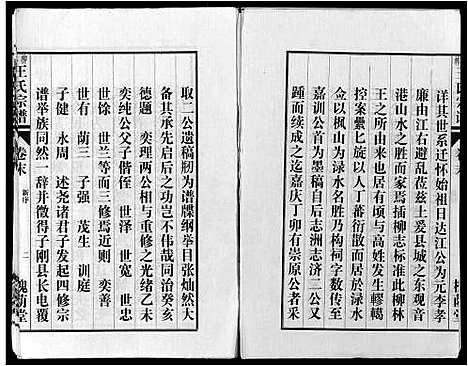 詳其世系迁怀始祖日达江公为元李孝
廉由江右避乱莅兹土爱县城之东观音
港山水之胜而家焉插柳志标故此柳林
王之所由来也厥后支派发生轇轕
控案纍匕旋以人丁蕃衍散而居於渌水
佥以枫山为渌水名胜乃构祠字数传
嘉训公首为墨稿自后志洲志济二公又
踵而续成之迄嘉庆丁卯有崇原公者
取二公遗稿牣为谱牒纲举目张灿然大
备其承先启后之功岂不伟哉同治癸亥
德题 奕理两公相与重修之光绪乙未
奕纯公父子偕侄 世泽 世宽 世忠
世馀 世兰等而三修 初则 奕善
世有 荫三 子强 茂生 训庭
子健 永周 述尧诸君子发起四修宗
谱举族同然一辞并徵得子刚县长电覆
王氏宗谱
卷末
新序
二
槐荫堂